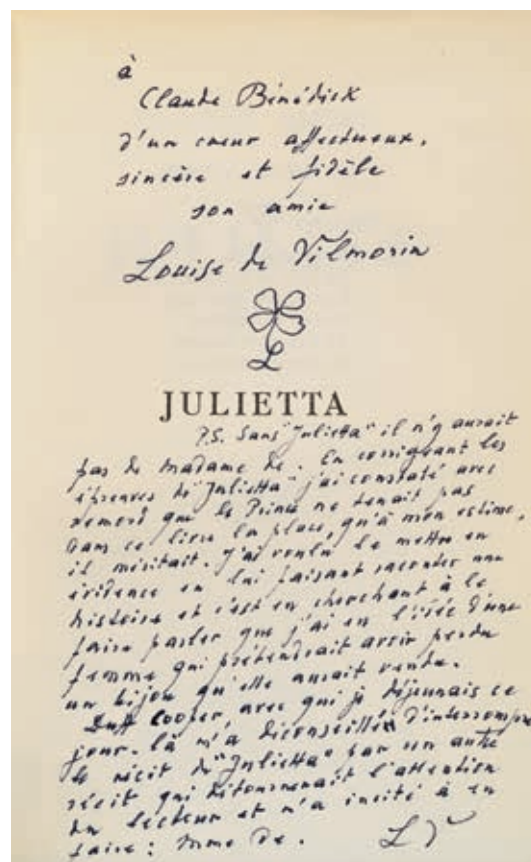 à
Claude Bénédick
d'un cœur affectueux,
sincère et fidèle
son amie
Louise de Vilmorin
L
JULIETTA
P.S. Sans "Julietta" il n'y aurait
pas de Madame de. En corrigeant les
épreuves de "Julietta" j'ai constaté avec
remord que le Prince ne tenait pas
dans ce livre la place, qu'à mon estime,
il méritait. J'ai voulu le mettre en
évidence en lui faisant raconter une
histoire et c'est en cherchant à le
faire parler que j'ai eu l'idée d'une
femme qui prétendrait avoir perdu
un bijou qu'elle aurait vendu.
Duff Cooper, avec qui je déjeunais ce
jour-là m'a déconseillé d'interrompre
le récit de "Julietta" par un autre
récit qui détournerait l'attention
du lecteur et m'a incité à en
faire : Mme de.
L V